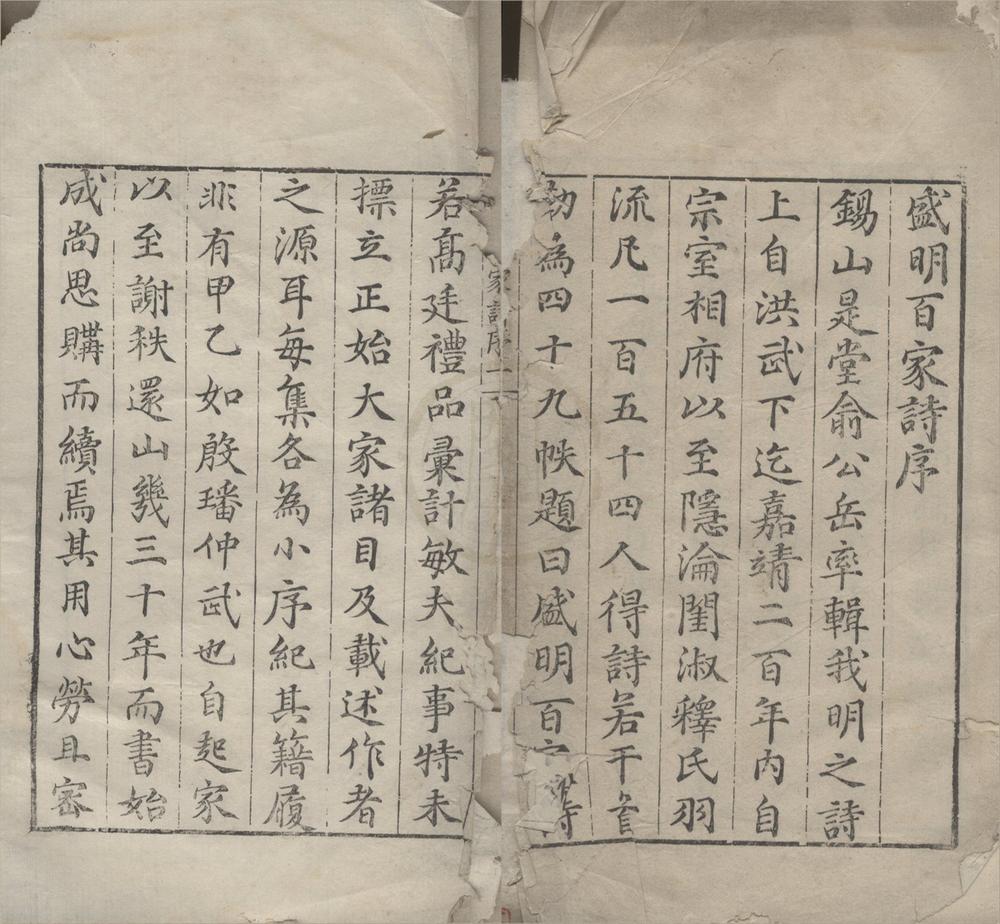 盛明百家詩序
錫山是堂俞公岳率輯我明之詩
上自洪武下迄嘉靖二百年內自
宗室相府以至隱淪閨淑釋氏羽
流凡一百五十四人得詩若干首
為四十九帙題曰盛明百家詩
家詩序一
若髙廷禮品彙計敏夫紀事特未
摽立正始大家諸目及載述作者
之源耳每集各為小序紀其籍履
非有甲乙如殷璠仲武也自起家
以至謝秩還山幾三十年而書始
成尚思購而續焉其用心勞且密